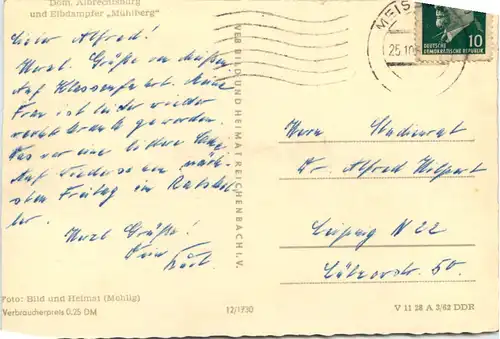 Dom, Albrechtsburg
und Elbdampfer „Mühlberg"
Lieber Alfred!
Herzl. Grüße von
auf Klassenfahrt. Meine
Frau ist leider wieder
recht krank geworden.
Das war eine bittere
Auf Wiedersehen näch-
sten Freitag im Ratskel-
ler.
Herzl. Grüße!
Dein
Karl.
Foto: Bild und Heimat (Mehlig)
Verbraucherpreis 0,25 DM
VEB BILD UND HEIMAT REICHENBACH I. V.
12/1730
MEIS
25.10
DEUTSCHE
DEMOKRATISCHE REPUBLIK
10
Herrn Studienrat
Dr. Alfred Hilpert
Leipzig N 22
Lützowstr. 50.
V 11 28 A 2/62 DDR